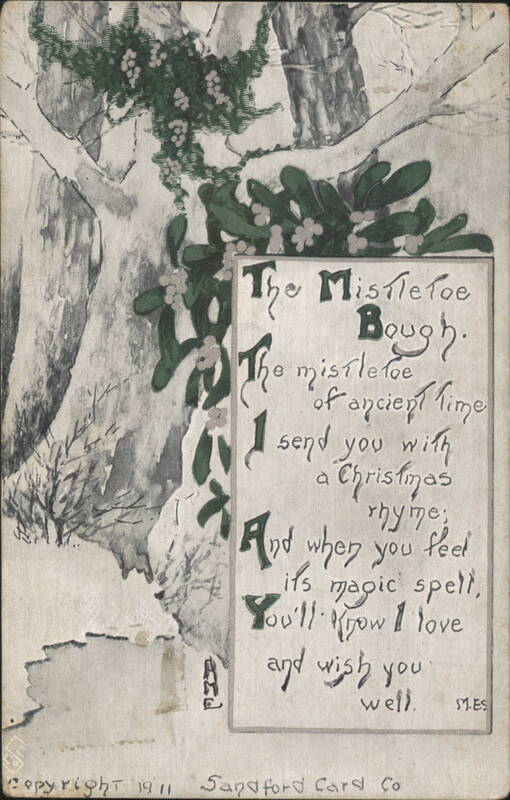 The Mistletoe
Bough.
The mistletoe
of ancient time
I send you with
a Christmas
rhyme;
And when you feel
its magic spell,
You'll Know I love
and wish you
well.
M.ES.
AME
Copyright 1911 Sandford Card Co